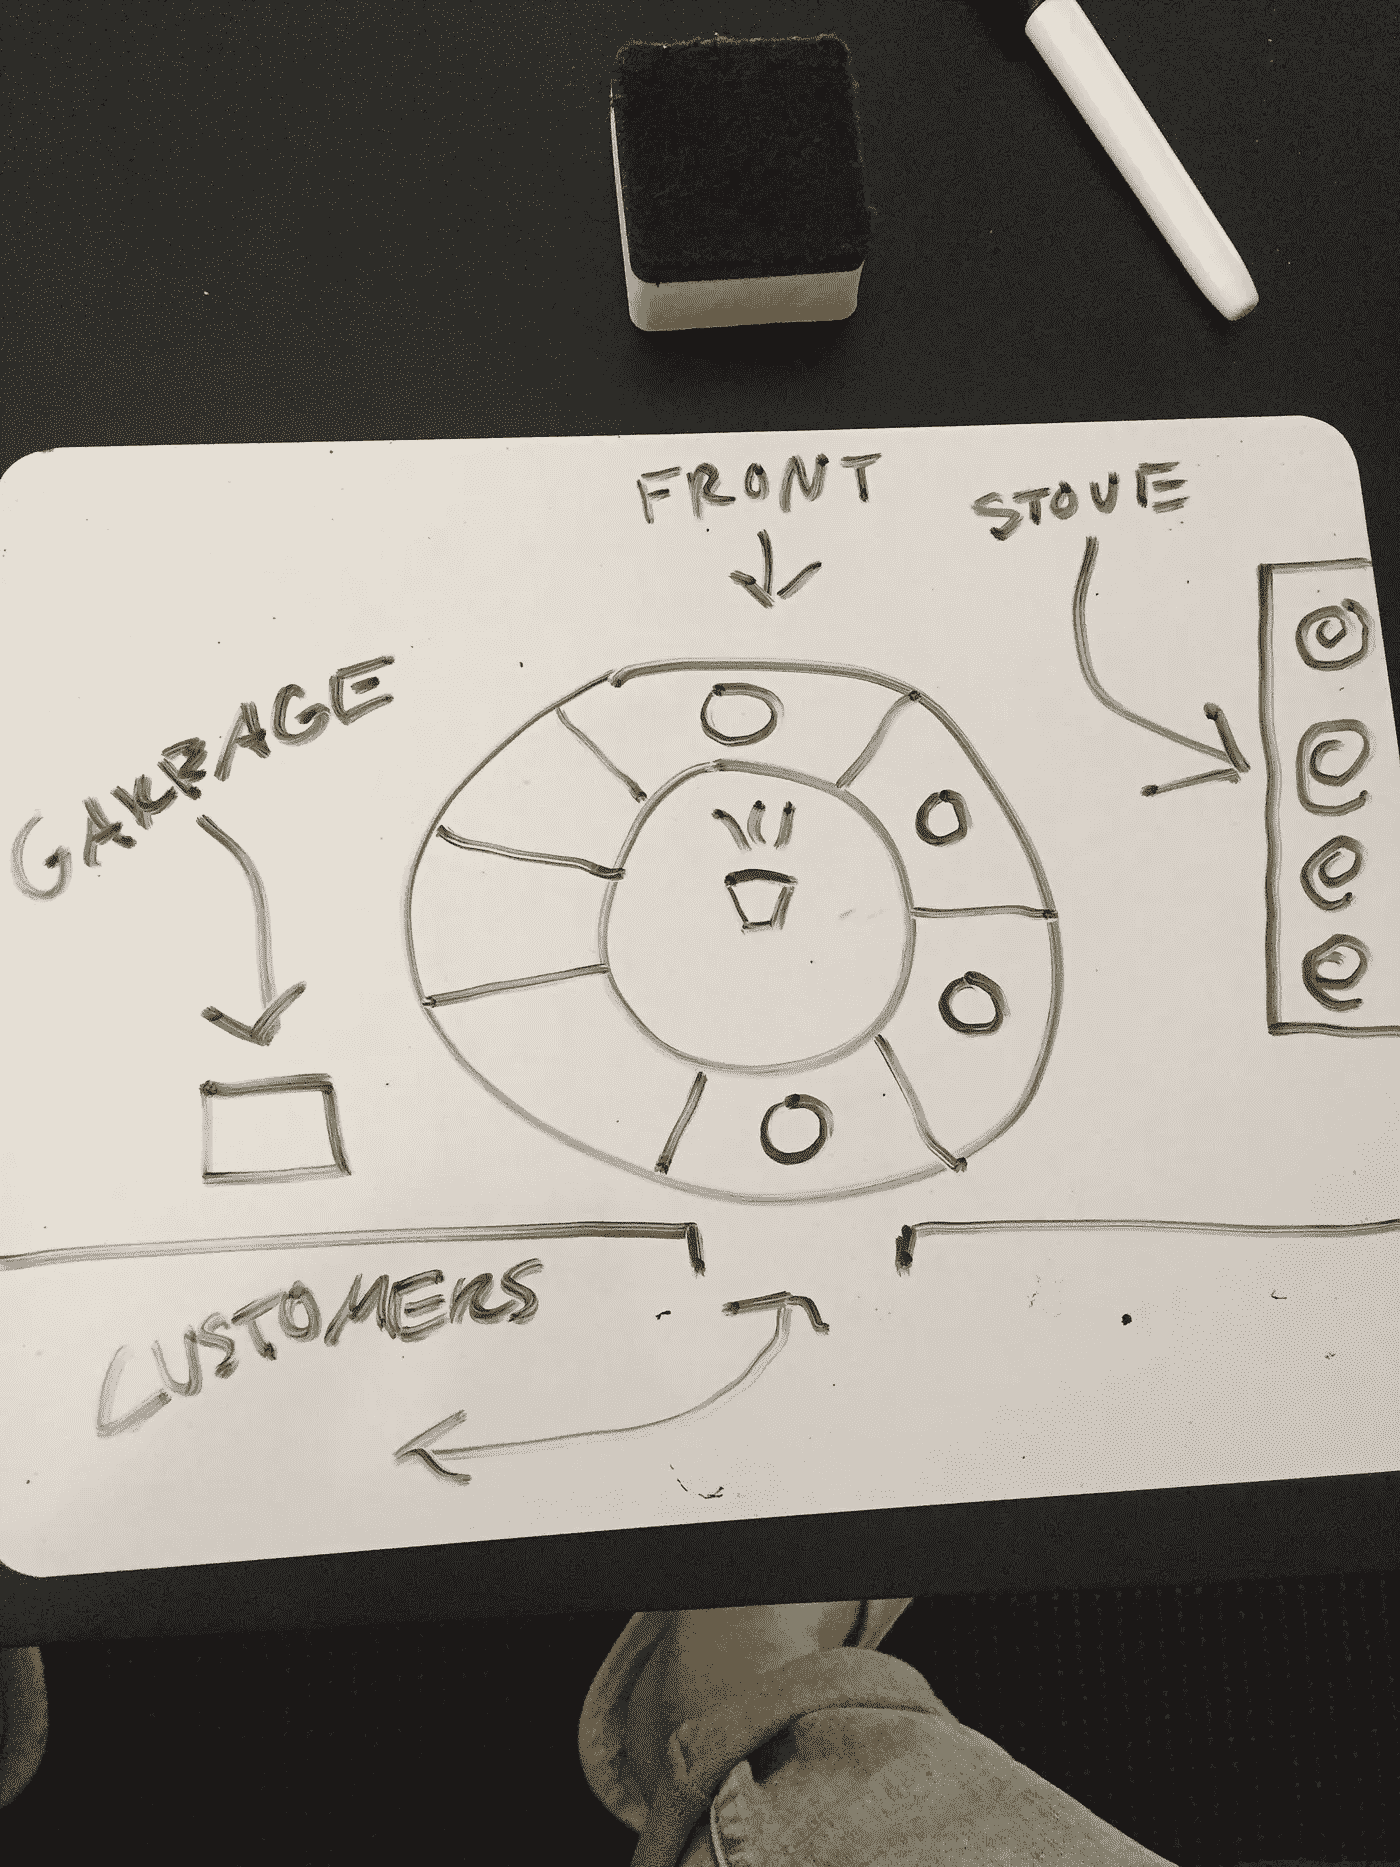 FRONT
STOVE
GARBAGE
CUSTOMERS